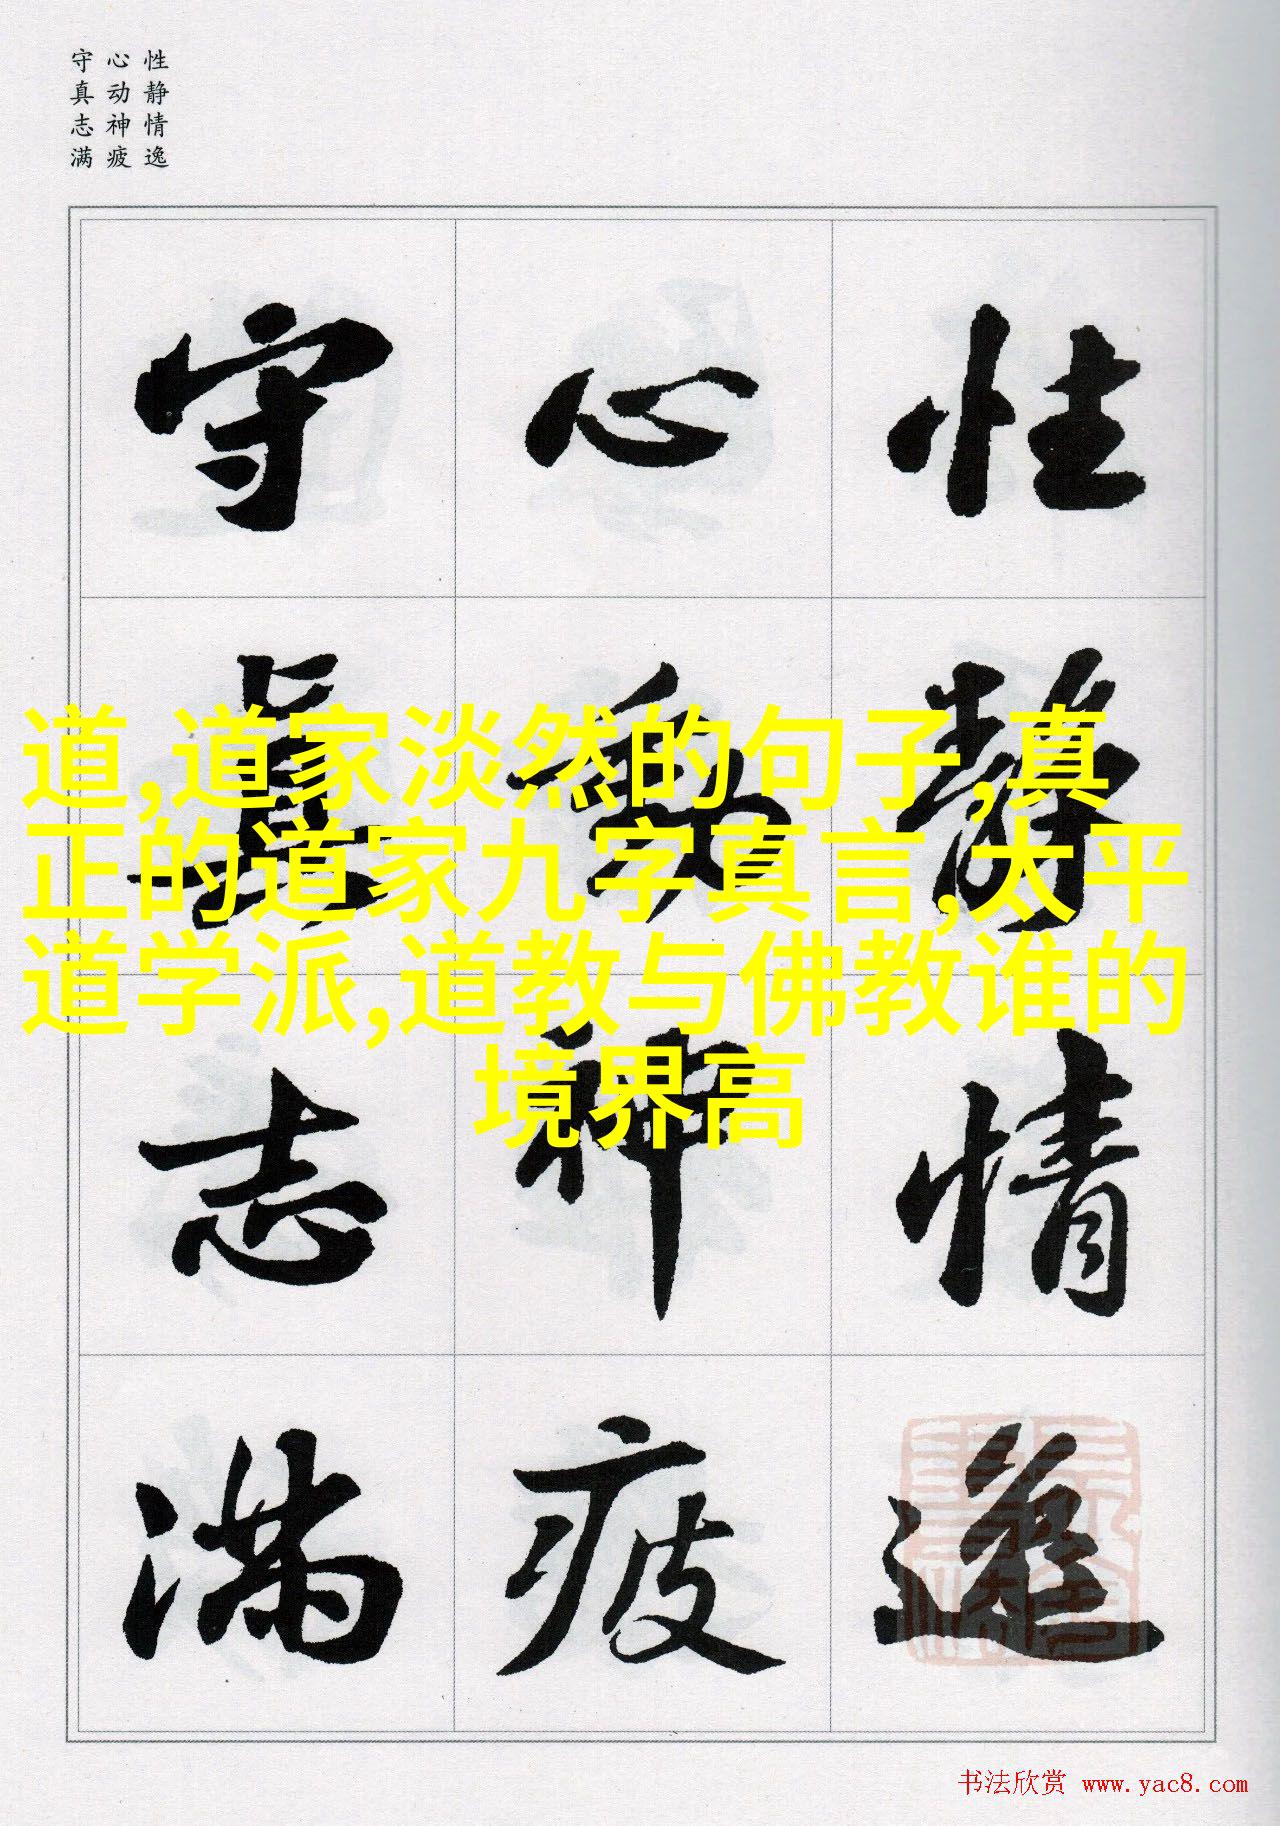 性静情逸
心动神疲
守真志满
性静情逸
心動神疲
守真志满
道,道家淡然的句子,真
正的道家九字真言,太平
道学派,道教与佛教谁的
境界高
书法欣赏 www.yac8.com